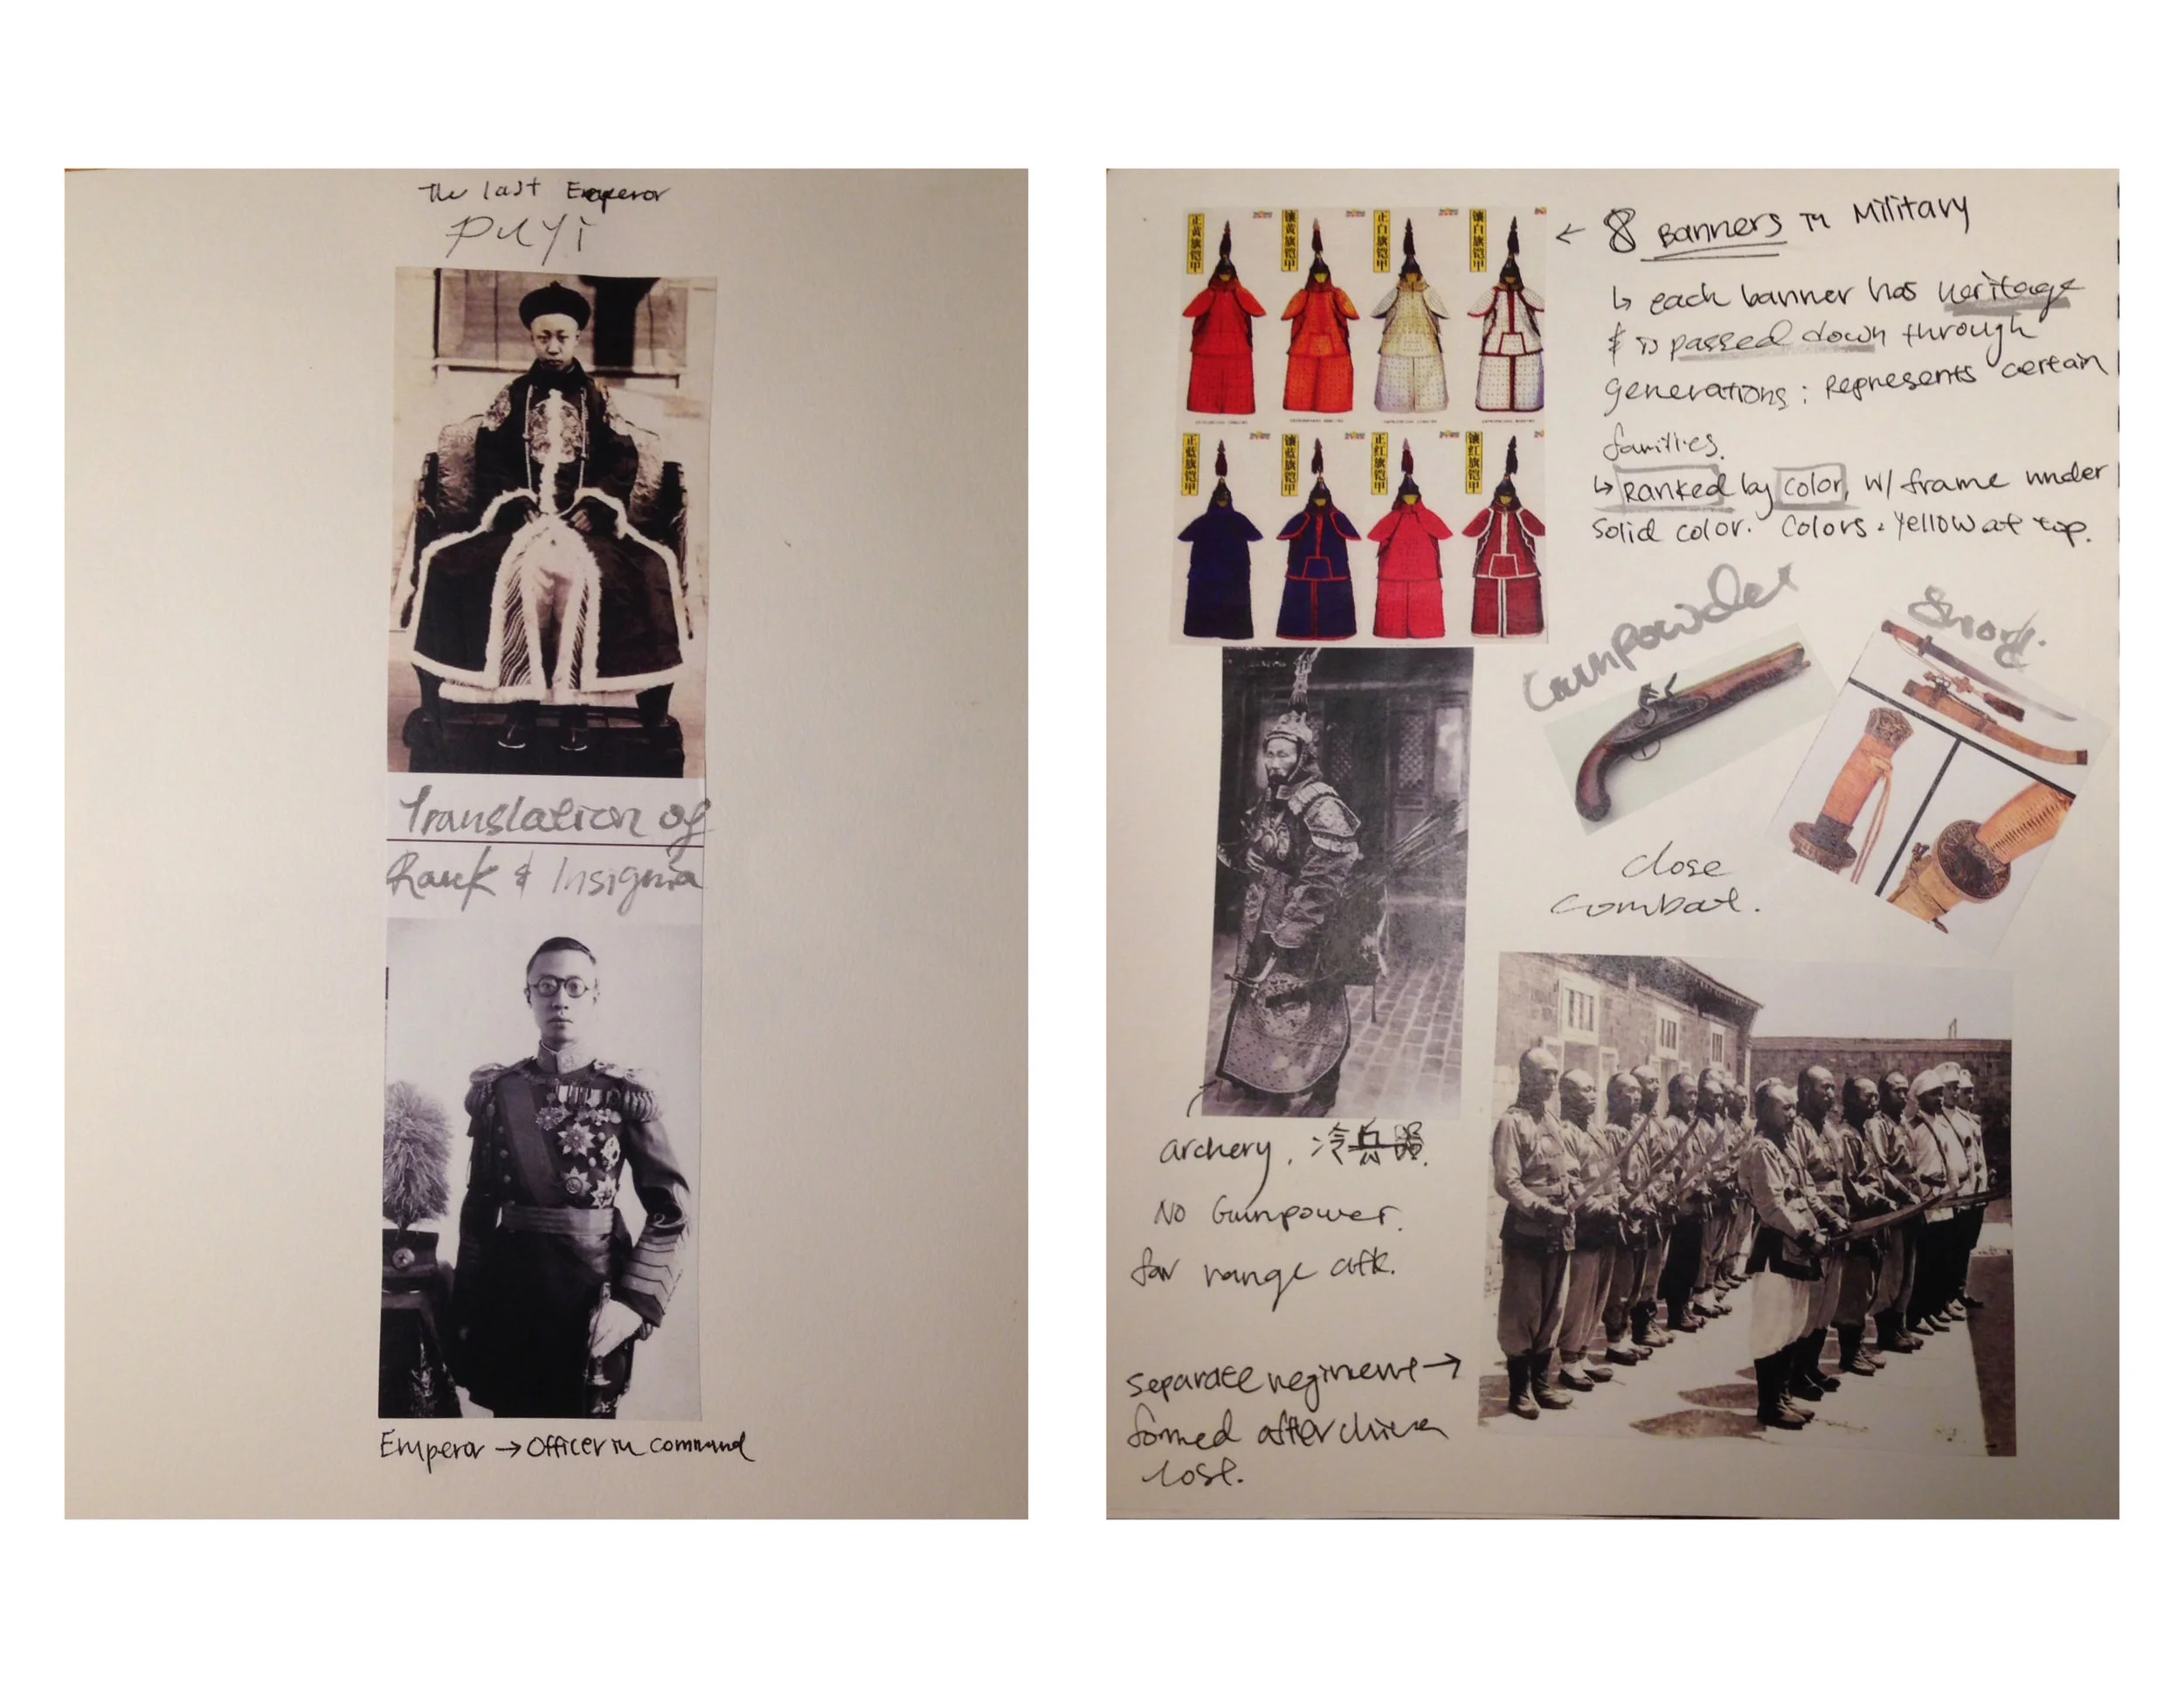 The last Emperor
PUYi
Translation of
Rank & Insignia
Emperor → Officer in command
正黄旗铠甲
镶黄旗铠甲
正白旗铠甲
镶白旗铠甲
正蓝旗铠甲
镶蓝旗铠甲
正红旗铠甲
镶红旗铠甲
← 8 Banners in Military
↳ each banner has heritage
& is passed down through
generations : Represents certain
families.
↳ Ranked by color, w/ frame under
solid color. Colors : Yellow at top.
Gunpowder
Sword.
close
combat.
archery. 冷兵器.
No Gunpower.
far range atk.
separate regiment →
formed after china
lost.